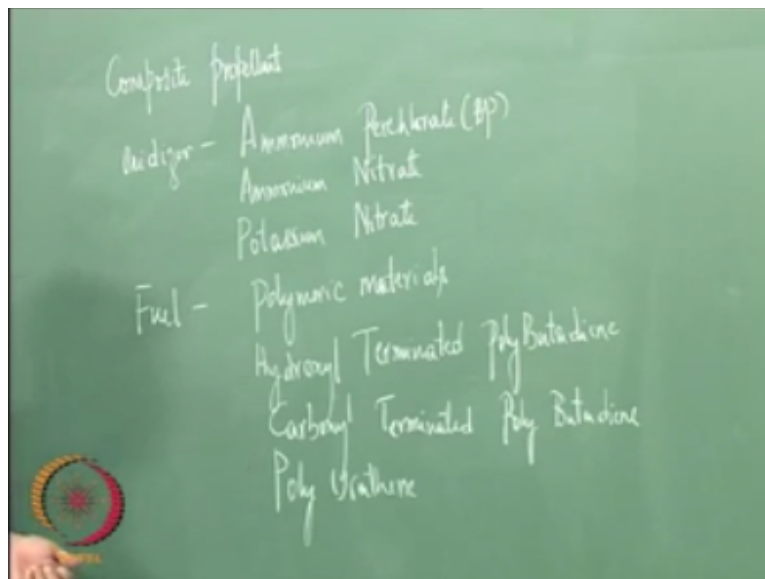 Composite propellant
Oxidizer - Ammonium Perchlorate (AP)
Ammonium Nitrate
Potassium Nitrate
Fuel - Polymeric materials
Hydroxyl Terminated PolyButadiene
Carboxyl Terminated Poly Butadiene
Poly Urathene